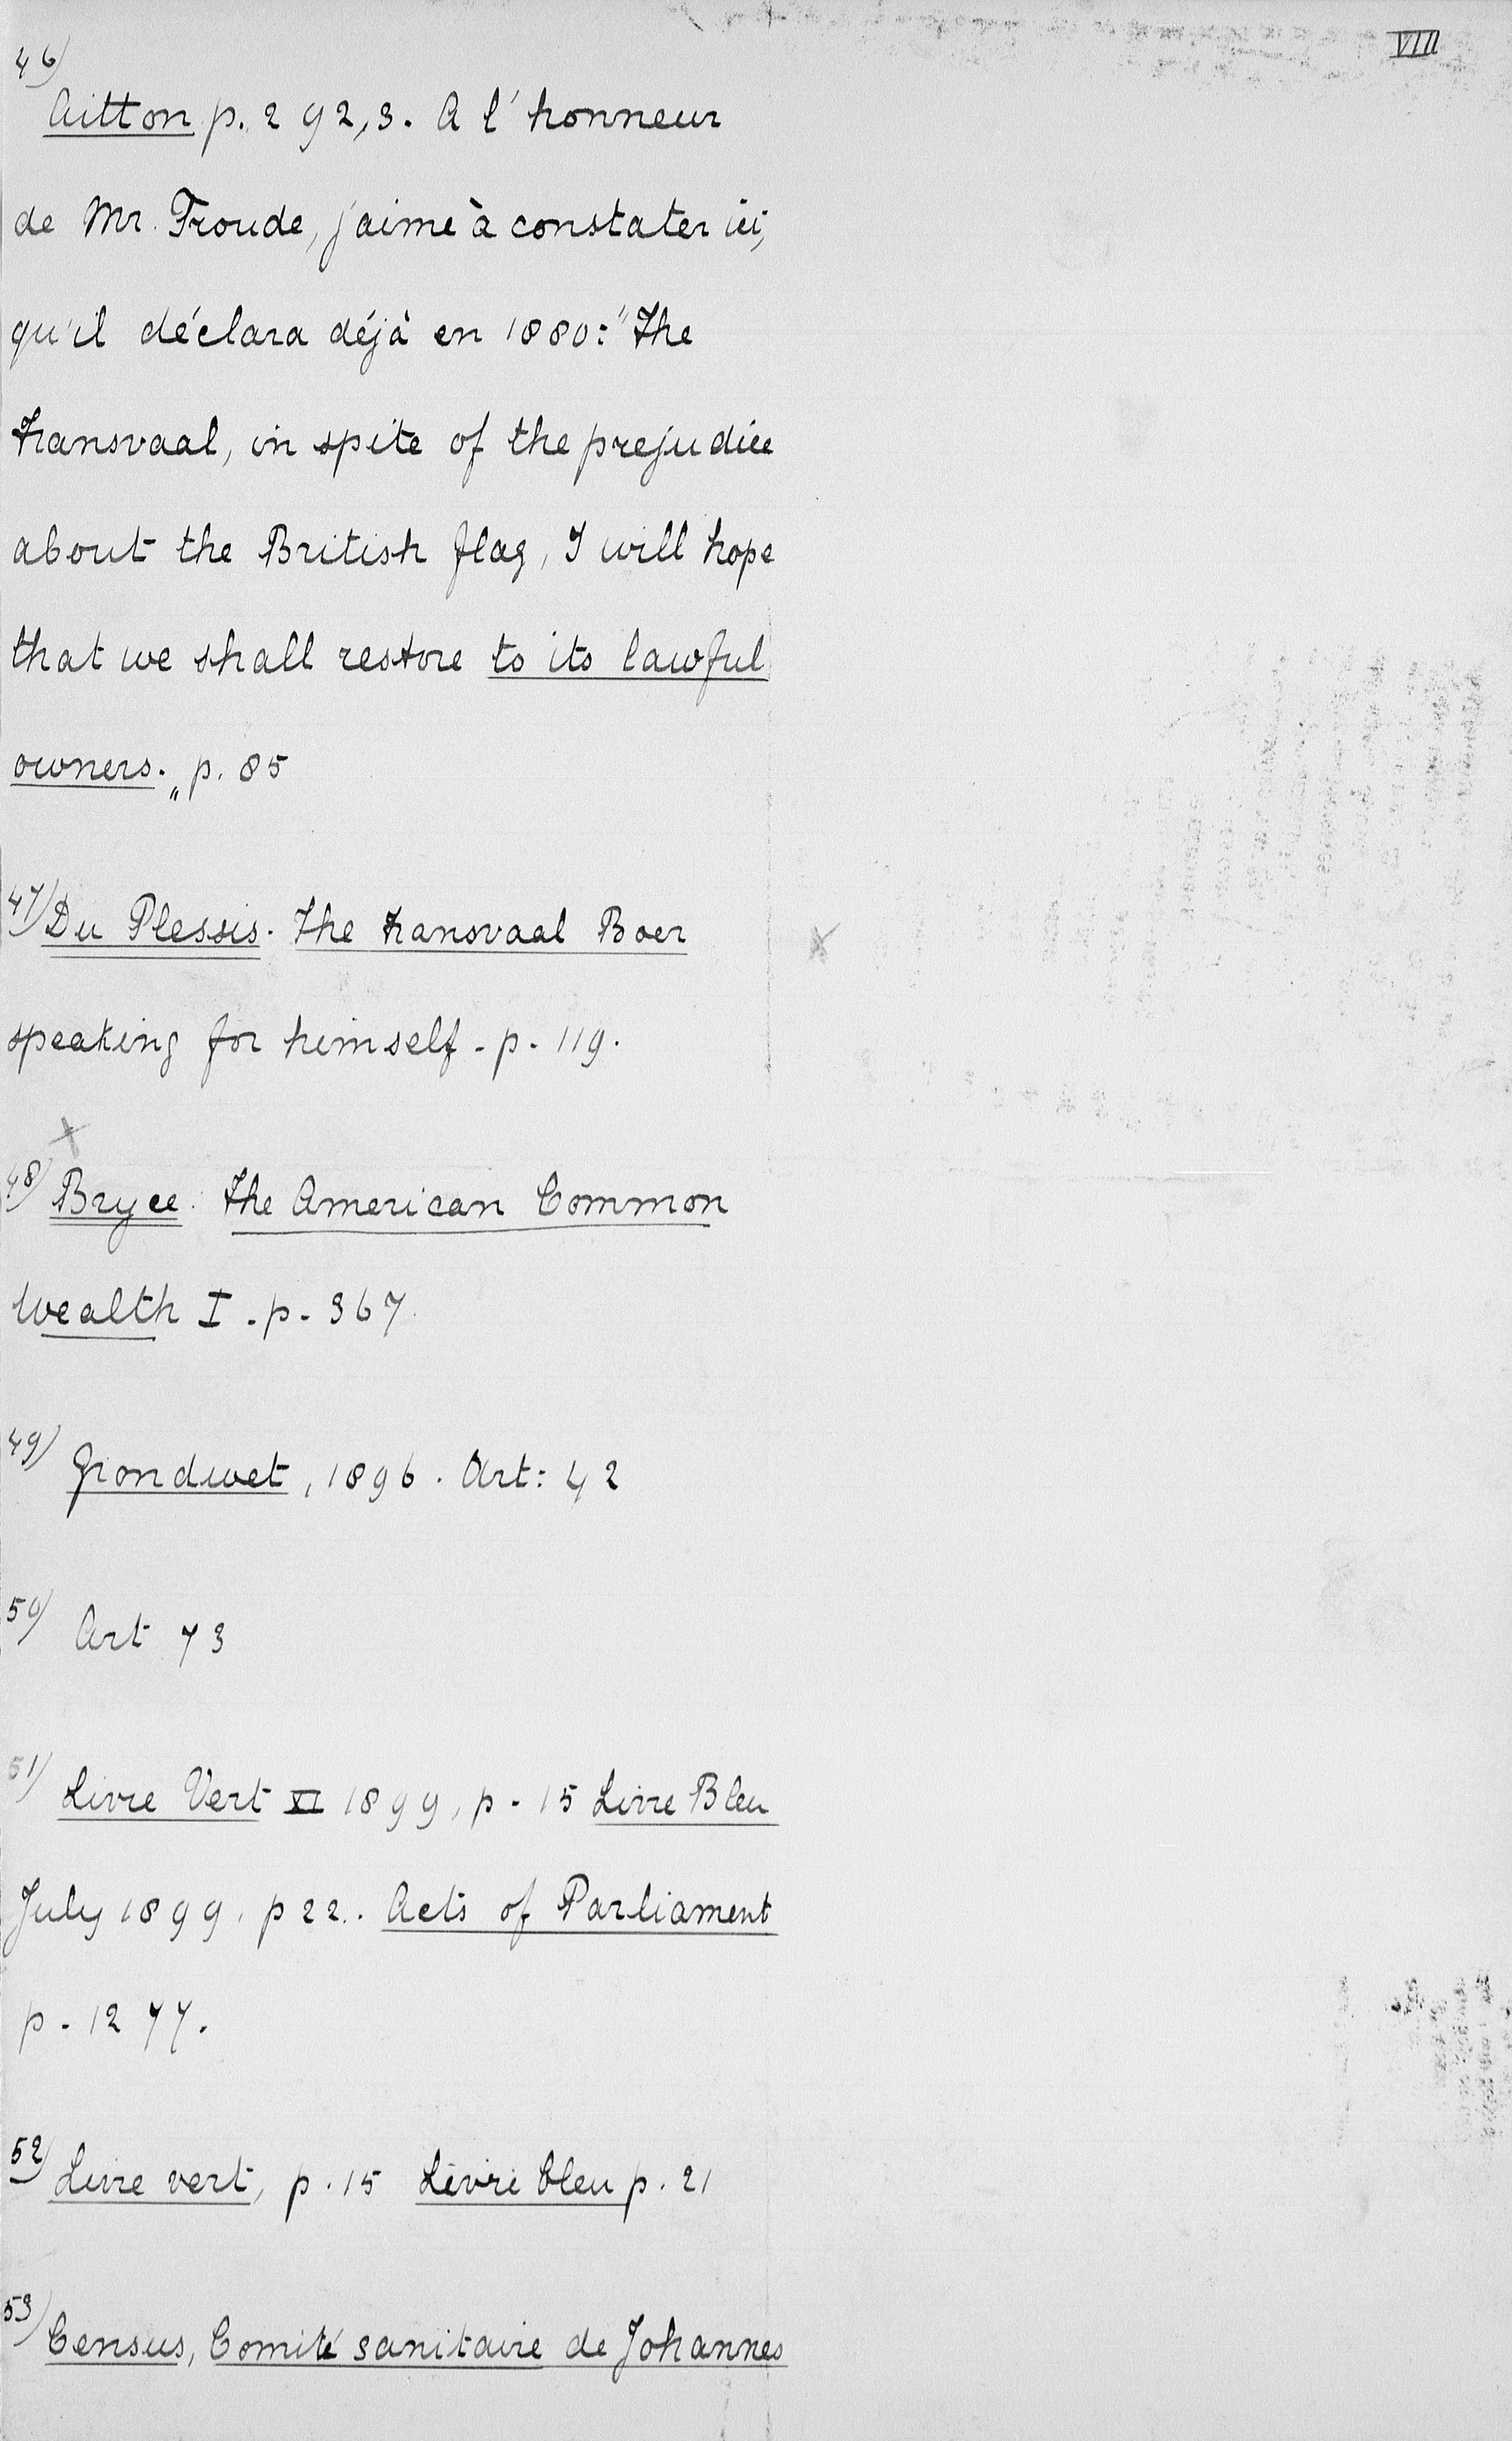 VIII
46)
Aitton p. 292,3. A l'honneur
de Mr. Froude, j'aime à constater ici,
qu'il déclara déjà en 1880: "The
Transvaal, in spite of the prejudice
about the British flag, I will hope
that we shall restore to its lawful
owners.„ p. 85
47) Du Plessis. The Transvaal Boer
speaking for himself - p. 119.
48) Bryce. The American Common
wealth I - p. 367
49) Grondwet, 1896. Art: 42
50) Art 73
51) Livre Vert XI 1899, p. 15 Livre Bleu
July 1899. p 22. Acts of Parliament
p. 1277.
52) Livre vert, p. 15 Livre bleu p. 21
53) Census, Comité sanitaire de Johannes